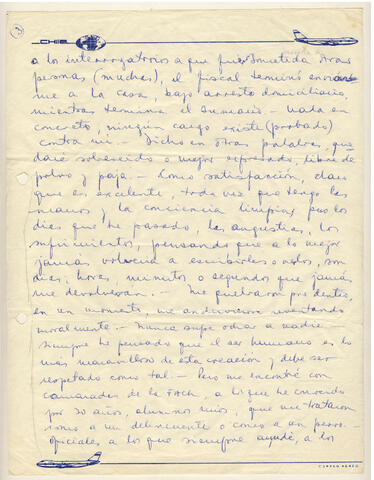 3
CHILE
a los interrogatorios a que fue sometida otras
personas (muchas), el fiscal terminó enviándo
me a la casa, bajo arresto domiciliario,
mientras termina el sumario.- Nada en
concreto, ningún cargo existe (probado)
contra mí.- Dicho en otras palabras, que
daré sobreseído o mejor expresado, libre de
polvo y paja.- Como satisfacción, claro
que es excelente, toda vez que tengo las
manos y la conciencia limpias, pero los
días que he pasado, las angustias, los
sufrimientos, pensando que a lo mejor
jamás volvería a escribirles a Uds, son
días, horas minutos o segundos que jamás
me devolverán.- Me quebraron por dentro,
en un momento, me anduvieron reventando
moralmente.- Nunca supe odiar a nadie
siempre he pensado que el ser humano es lo
más maravilloso de esta creación y debe ser
respetado como tal.- Pero me encontré con
camaradas de la FACH, a los que he conocido
por 20 años, alumnos míos, que me trataron
como a un delincuente o como a un perro.-
oficiales a los que siempre ayudé, a los
CORREO AEREO